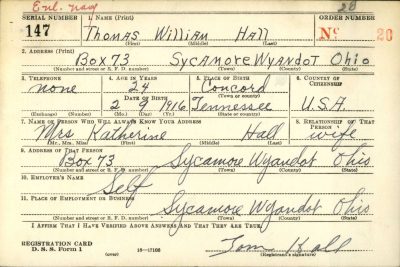 Enl. Navy
20
SERIAL NUMBER 1. NAME (Print) ORDER NUMBER
147 Thomas William Hall No 20
(First) (Middle) (Last)
2. ADDRESS (Print)
Box 73 Sycamore Wyandot Ohio
(Number and street or R. F. D. number) (Town) (County) (State)
3. TELEPHONE 4. AGE IN YEARS 5. PLACE OF BIRTH 6. COUNTRY OF CITIZENSHIP
none 24 Concord
DATE OF BIRTH (Town or county)
2 9 1916 Tennessee U.S.A.
(Exchange) (Number) (Mo.) (Day) (Yr.) (State or country)
7. NAME OF PERSON WHO WILL ALWAYS KNOW YOUR ADDRESS 8. RELATIONSHIP OF THAT PERSON
Mrs Katherine Hall wife
(Mr., Mrs., Miss) (First) (Middle) (Last)
9. ADDRESS OF THAT PERSON
Box 73 Sycamore Wyandot Ohio
(Number and street or R. F. D. number) (Town) (County) (State)
10. EMPLOYER'S NAME
Self
11. PLACE OF EMPLOYMENT OR BUSINESS
Sycamore Wyandot Ohio
(Number and street or R. F. D. number) (Town) (County) (State)
I AFFIRM THAT I HAVE VERIFIED ABOVE ANSWERS AND THAT THEY ARE TRUE.
REGISTRATION CARD
D. S. S. Form 1 16—17105 Tom Hall